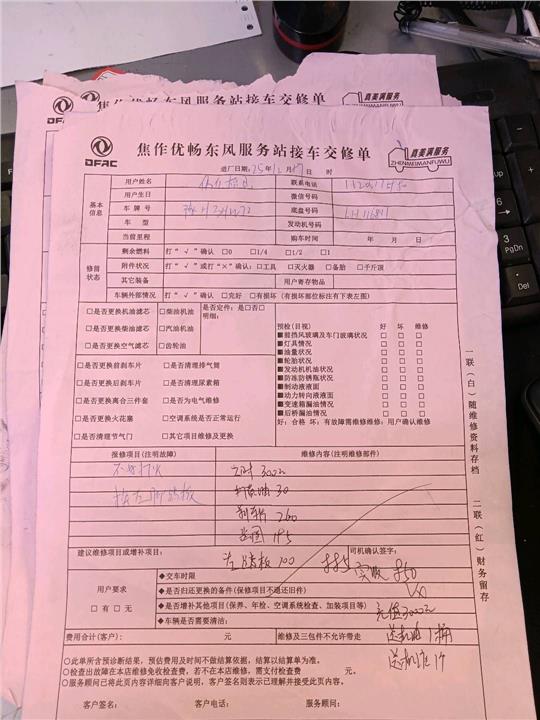 焦作优畅东风服务站接车交修单
真美满服务
DFAC
焦作优畅东风服务站接车交修单
DFAC
真美满服务
ZHENMEIMANFUWU
进厂日期:25年 月17日 时
基本信息
用户姓名 联系电话
用户生日 微信号码
车牌号 底盘号码
车型 发动机号码
当前里程 购车时间 年 月 日
修前状态
剩余燃料 打“√”确认 □0 □1/4 □1/2 □1
附件状况 打“√”或打“×”确认:□工具 □灭火器 □备胎 □千斤顶
其它装备 用户寄存物品
车辆外部情况 打“√”确认 □完好 □有损坏(有损坏部位标注有下表左图)
□是否更换机油滤芯 □柴油机油
□是否更换柴油滤芯 □汽油机油
□是否更换空气滤芯 □齿轮油
是否定件:是□否□
明细:
□是否更换前刹车片 □是否清理排气筒
□是否更换后刹车片 □是否清理尿素箱
□是否更换离合三件套 □是否为电气维修
□是否更换火花塞 □空调系统是否正常运行
□是否清理节气门 □其它项目维修及更换
预检(目视) 好 坏 维修
■前挡风玻璃及车门玻璃状况 □ □ □
■灯具情况 □ □ □
■油量状况 □ □ □
■轮胎状况 □ □ □
■发动机机油状况 □ □ □
■防冻防锈瓶状况 □ □ □
■制动液液面 □ □ □
■动力转向液液面 □ □ □
■变速箱漏油情况 □ □ □
■后桥漏油情况 □ □ □
好:合格 坏:有故障需维修维修:用户确认维修
报修项目(注明故障) 维修内容(注明维修部件)
不好打火 工时 300元
30
260
185
建议维修项目或增补项目: 踏板 100
司机确认签字:
实收 850
用户要求
□有 □无
◆交车时限
◆是否归还更换的备件(保修项目不退还旧件)
◆是否增补其他项目(保养、年检、空调系统检查、加装项目等)
◆车辆是否需要清洁:
充值3000元
送机油1桶
送机滤1个
费用合计(客户): 元 维修及三包件不允许带走
○此单所含预诊断结果,预估费用及时间不做结算依据,结算以结算单为准。
○检查出故障在本店维修免收检查费,若不在本店维修,需支付检查费 元。
○服务顾问已将此页内容详细向客户说明,客户签名则表示已理解并接受此页内容。
客户签名: 客户电话: 服务顾问:
一联(白)随维修资料存档 二联(红)财务留存